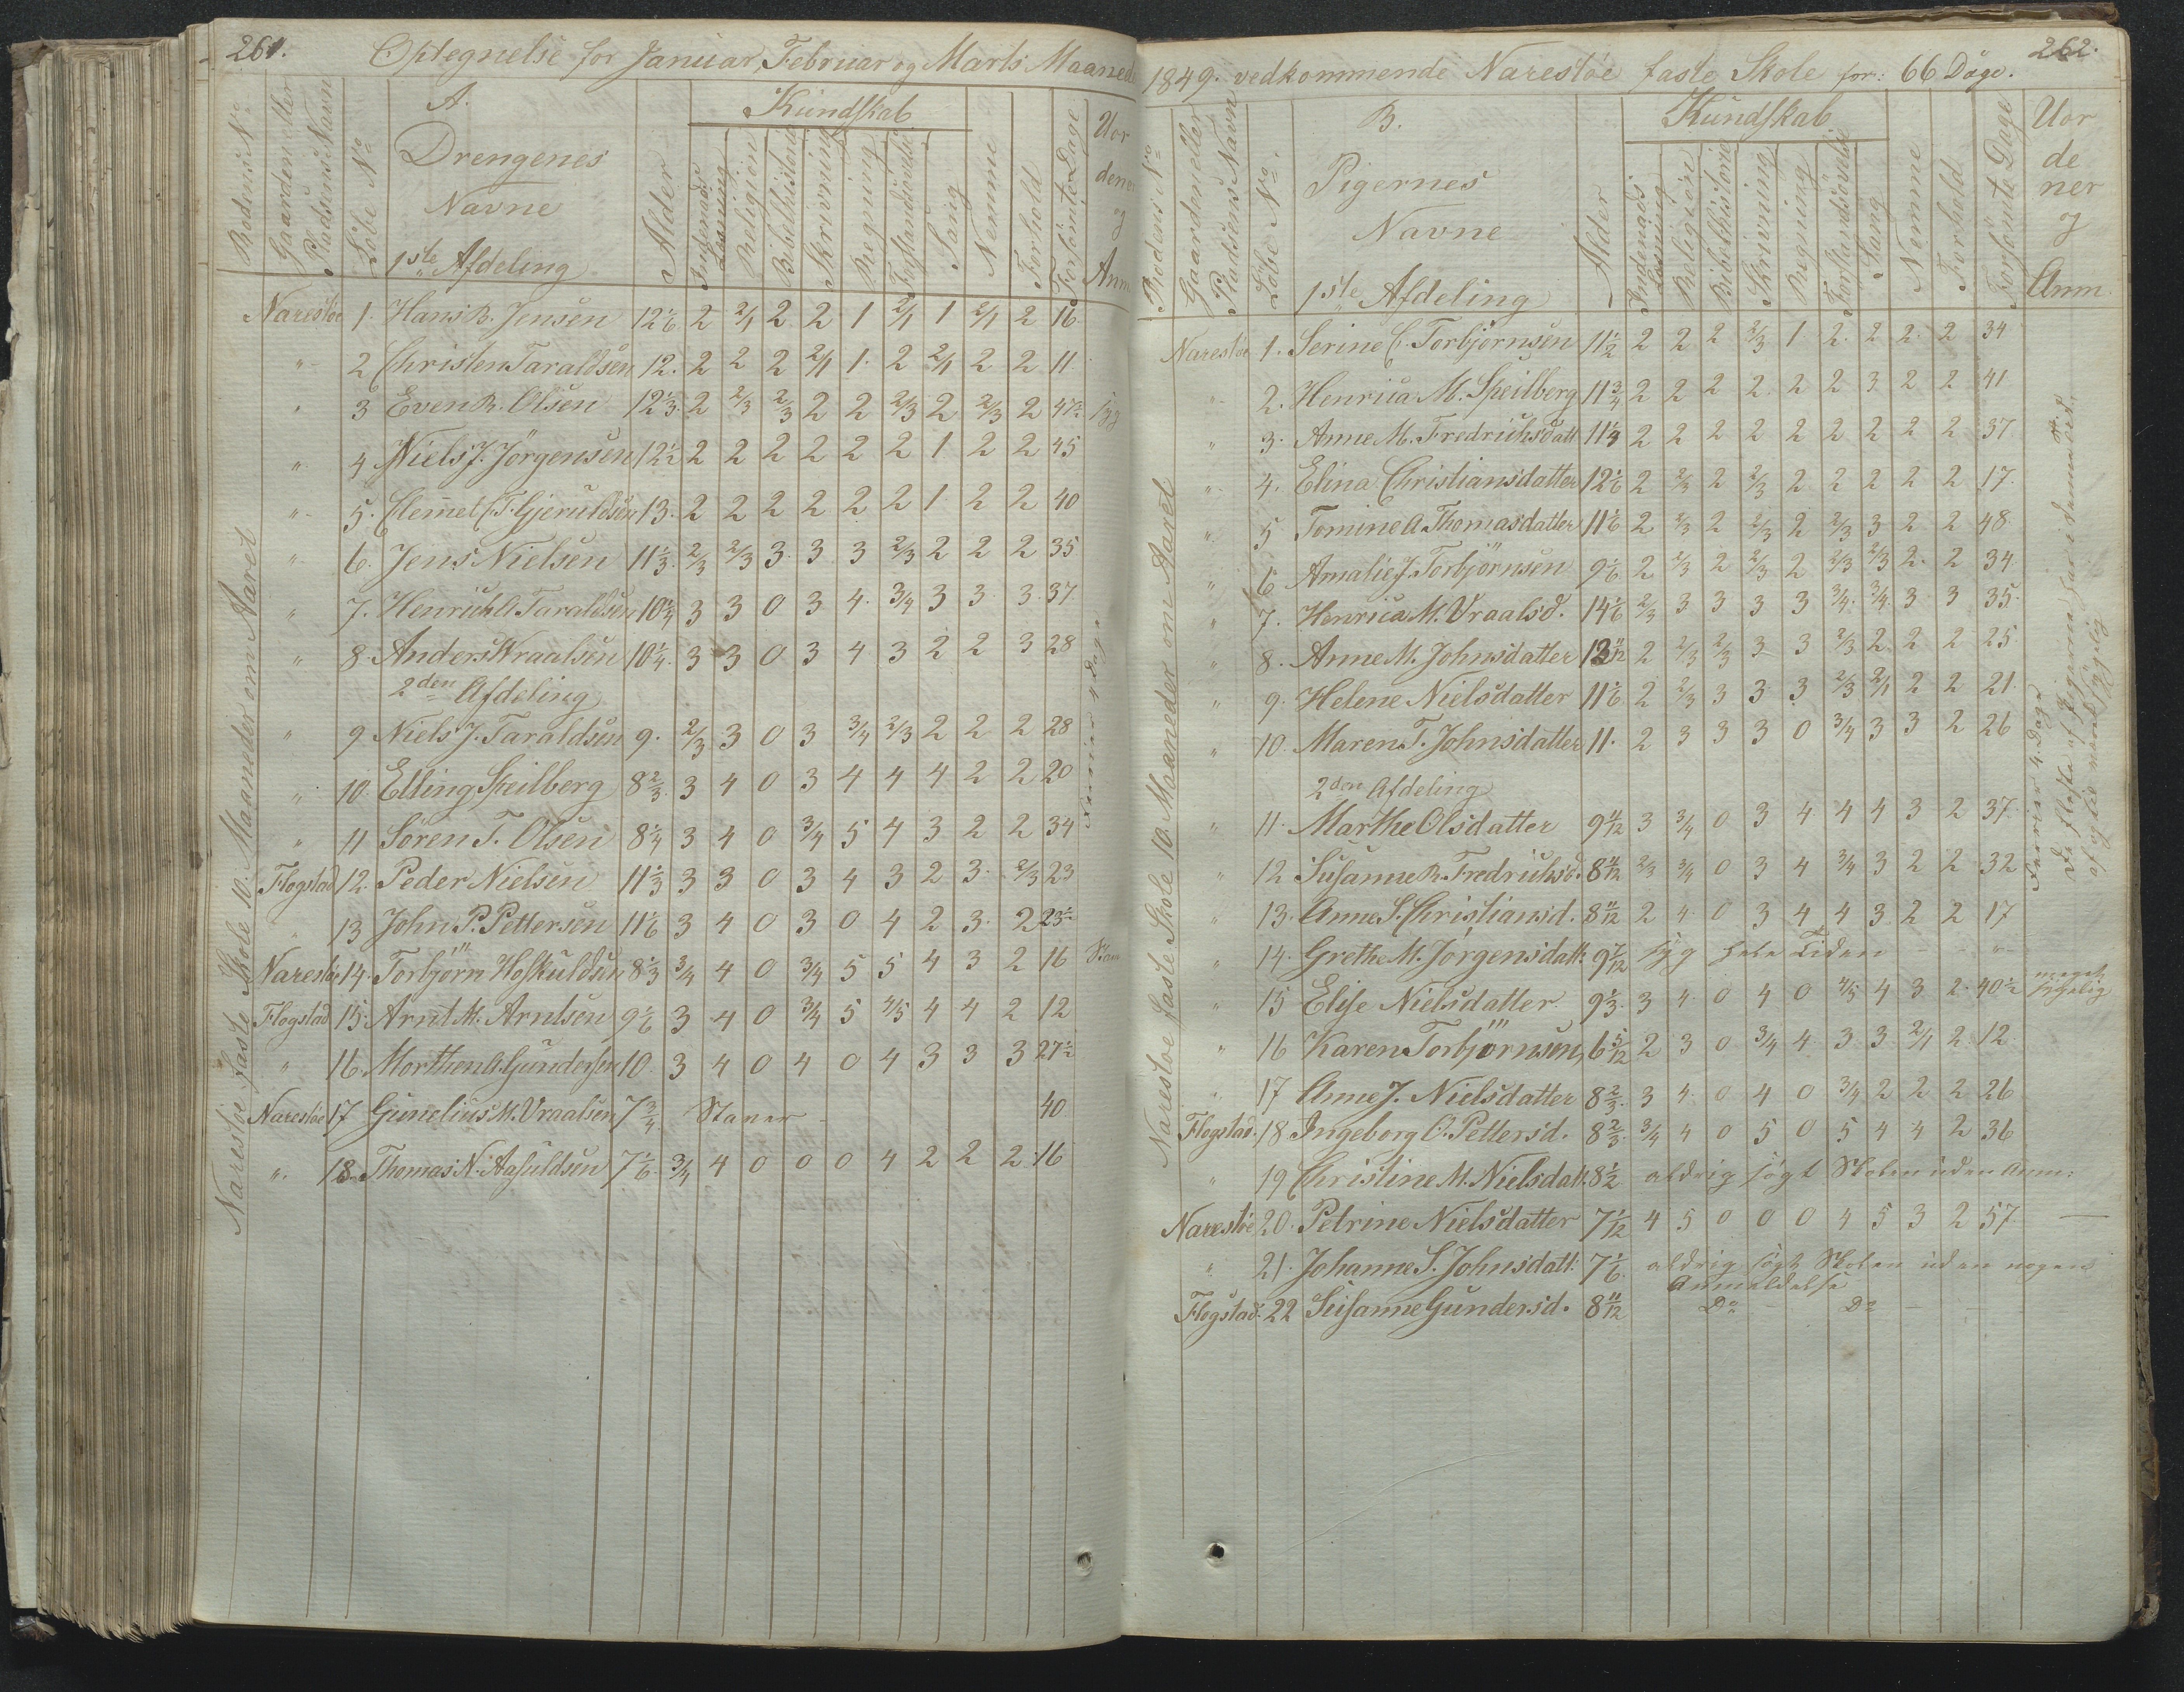 261.
Optegnelse for Januar, Februar og Marts Maaned
Rodens No
Gaardens eller Pladsens Navn
Löbe No
A.
Drengenes
Navne
1ste Afdeling
Alder
Kundskab
Indenads Læsning
Religion
Bibelhistorie
Skrivning
Regning
Forstandsøvelse
Sang
Nemme
Forhold
Forsömte Dage
Uor
dener
og
Anm
Narestöe 1. Hans B. Jensen 12 1/6 2 2/1 2 2 1 2/1 1 2/1 2 16
" 2 Christen Taraldsen 12. 2 2 2 2/1 1. 2 2/1 2 2 11.
" 3 Even R. Olsen 12 1/3 2 2/3 2/3 2 2 2/3 2 2/3 2 syg
" 4 Niels J. Jörgensen 12 1/2 2 2 2 2 2 2 1 2 2 45
" 5. Clemet C. F. Gjeruldsen 13. 2 2 2 2 2 2 1 2 2 40
" 6. Jens Nielsen 11 1/3 2/3 2/3 3. 3 3 2/3 2 2 2 35
" 7. Henrich A. Taraldsen 10 3/4 3 3 0 3 4. 3/4 3 3. 3. 37
" 8. Anders Wraalsen 10 1/4 3 3 0 3 4 3 2 2 3 28
2den Afdeling
" 9 Niels J. Taraldsen 9. 2/3 3 0 3 3/4 2/3 2 2 2 28
" 10. Elling Speilberg 8 2/3 3 4 0 3 4 4 4 2 2 20
" 11 Sören T. Olsen 8 1/4 3 4 0 3/4 5 4 3 2 2 34
Flogstad 12. Peder Nielsen 11 1/3 3 3 0 3 4 3 2 3. 2/3 23
" 13 John P. Pettersen 11 1/6 3 4 0 3 0 4 2 3. 2 23 1/2
Narestöe 14. Torbjörn Hoskuldsen 8 1/3 3/4 4 0 3/4 5 5 4 3 2 16
Flogstad 15. Arnt M. Arntsen 9 1/6 3 4 0 3/4 5 4/5 4 4 2 12
" 16. Morthen A. Gundersen 10. 3 4 0 4 0 4 3 3 3 27 1/2
Narestöe 17 Gunelius M. Vraalsen 7 3/4 Staver 40
" 18. Thomas N. Aasuldsen 7 1/6 3/4 4 0 0 0 4 2 2 2 16
Narestöe faste Skole 10. Maaneder om Aaret
Ferier 4 Dage
262.
1849. vedkommende Narestöe faste Skole for: 66 Dage.
Rodens No
Gaardens eller Pladsens Navn
Löbe No.
B.
Pigernes
Navne
1ste Afdeling
Alder
Kundskab
Indenads Læsning
Religion
Bibelhistorie
Skrivning
Regning
Forstandsövelse
Sang
Nemme
Forhold
Forsömte Dage
Uor
de
ner
og
Anm.
Narestöe 1. Serine C. Torbjörnsen 11 1/2 2 2 2 2/3 1. 2. 2 2. 2 34
" 2. Henrica M. Speilberg 11 3/4 2 2 2 2. 2 2 3 2 2 41
" 3. Anne M. Fredrichsdatt 11 1/3 2 2 2 2 2 2 2 2 2 37
" 4. Elina Christiansdatter 12 1/6 2 2/3 2 2/3 2 2 2 2 2 17.
" 5 Tomine A Thomasdatter 11 1/6 2 2/3 2 2/3 2 2/3 3 2 2 48.
" 6 Amalie J. Torbjörnsen 9 1/6 2 2/3 2 2/3 2 2/3 2/3 2. 2 34
" 7. Henrica M. Vraalsd. 14 1/6 2/3 3 3 3 3 3/4 3/4 3 3 35.
" 8. Anne M. Johnsdatter 13 11/12 2 2/3 2/3 3 3 2/3 2 2 2 25
" 9. Helene Nielsdatter 11 1/6 2 2/3 3 3 3 2/3 2/1 2 2 21.
" 10. Maren T. Johnsdatter 11. 2 3 3 3 0 3/4 3 3 2 26
2den Afdeling
" 11. Marthe Olsdatter 9 11/12 3 3/4 0 3 4 4 4 3 2 37
" 12 Susanne B. Fredrichsd. 8 11/12 2/3 3/4 0 3 4 3/4 3 2 2 32
" 13. Anne S. Christiansd. 8 11/12 2 4 0 3 4 4 3 2 2 17
" 14. Grethe M. Jörgensdatt. 9 7/12 syg hele Tiden "
" 15 Elise Nielsdatter 9 1/3 3 4 0 4 0 4/5 4 3 2 40 1/2 meget sygelig
" 16 Karen Torbjörnsen, 6 5/12 2 3 0 3/4 4 3 3 2/1 2 12
" 17 Anne J. Nielsdatter 8 2/3 3 4 0 4 0 3/4 2 2 2 26
Flogstad. 18. Ingeborg O. Pettersd. 8 2/3 3/4 4 0 5 0 5 4 4 2 36
" 19 Christine M. Nielsdatt. 8 1/2 aldrig sögt Skolen uden Anm:
Narestöe 20. Petrine Nielsdatter 7 1/12 4 5 0 0 0 4 5 3 2 57.
" 21. Johanne S. Johnsdatt: 7 1/6 aldrig sögt Skolen uden nogen Anmeldelse
Flogstad. 22 Susanne Gundersd. 8 11/12 Do Do
Narestöe faste Skole 10. Maaneder om Aaret
Ferier 4. Dage
De fleste af Pigerne har